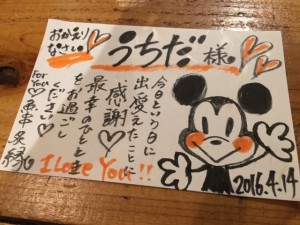 おかえり
なさい♡
うちだ様
今日という日に
出愛えたことに
感謝♡
最幸のひとときを
お過ごし
ください♡
For You
魚串 炙縁
I Love You!!
2016.4.14